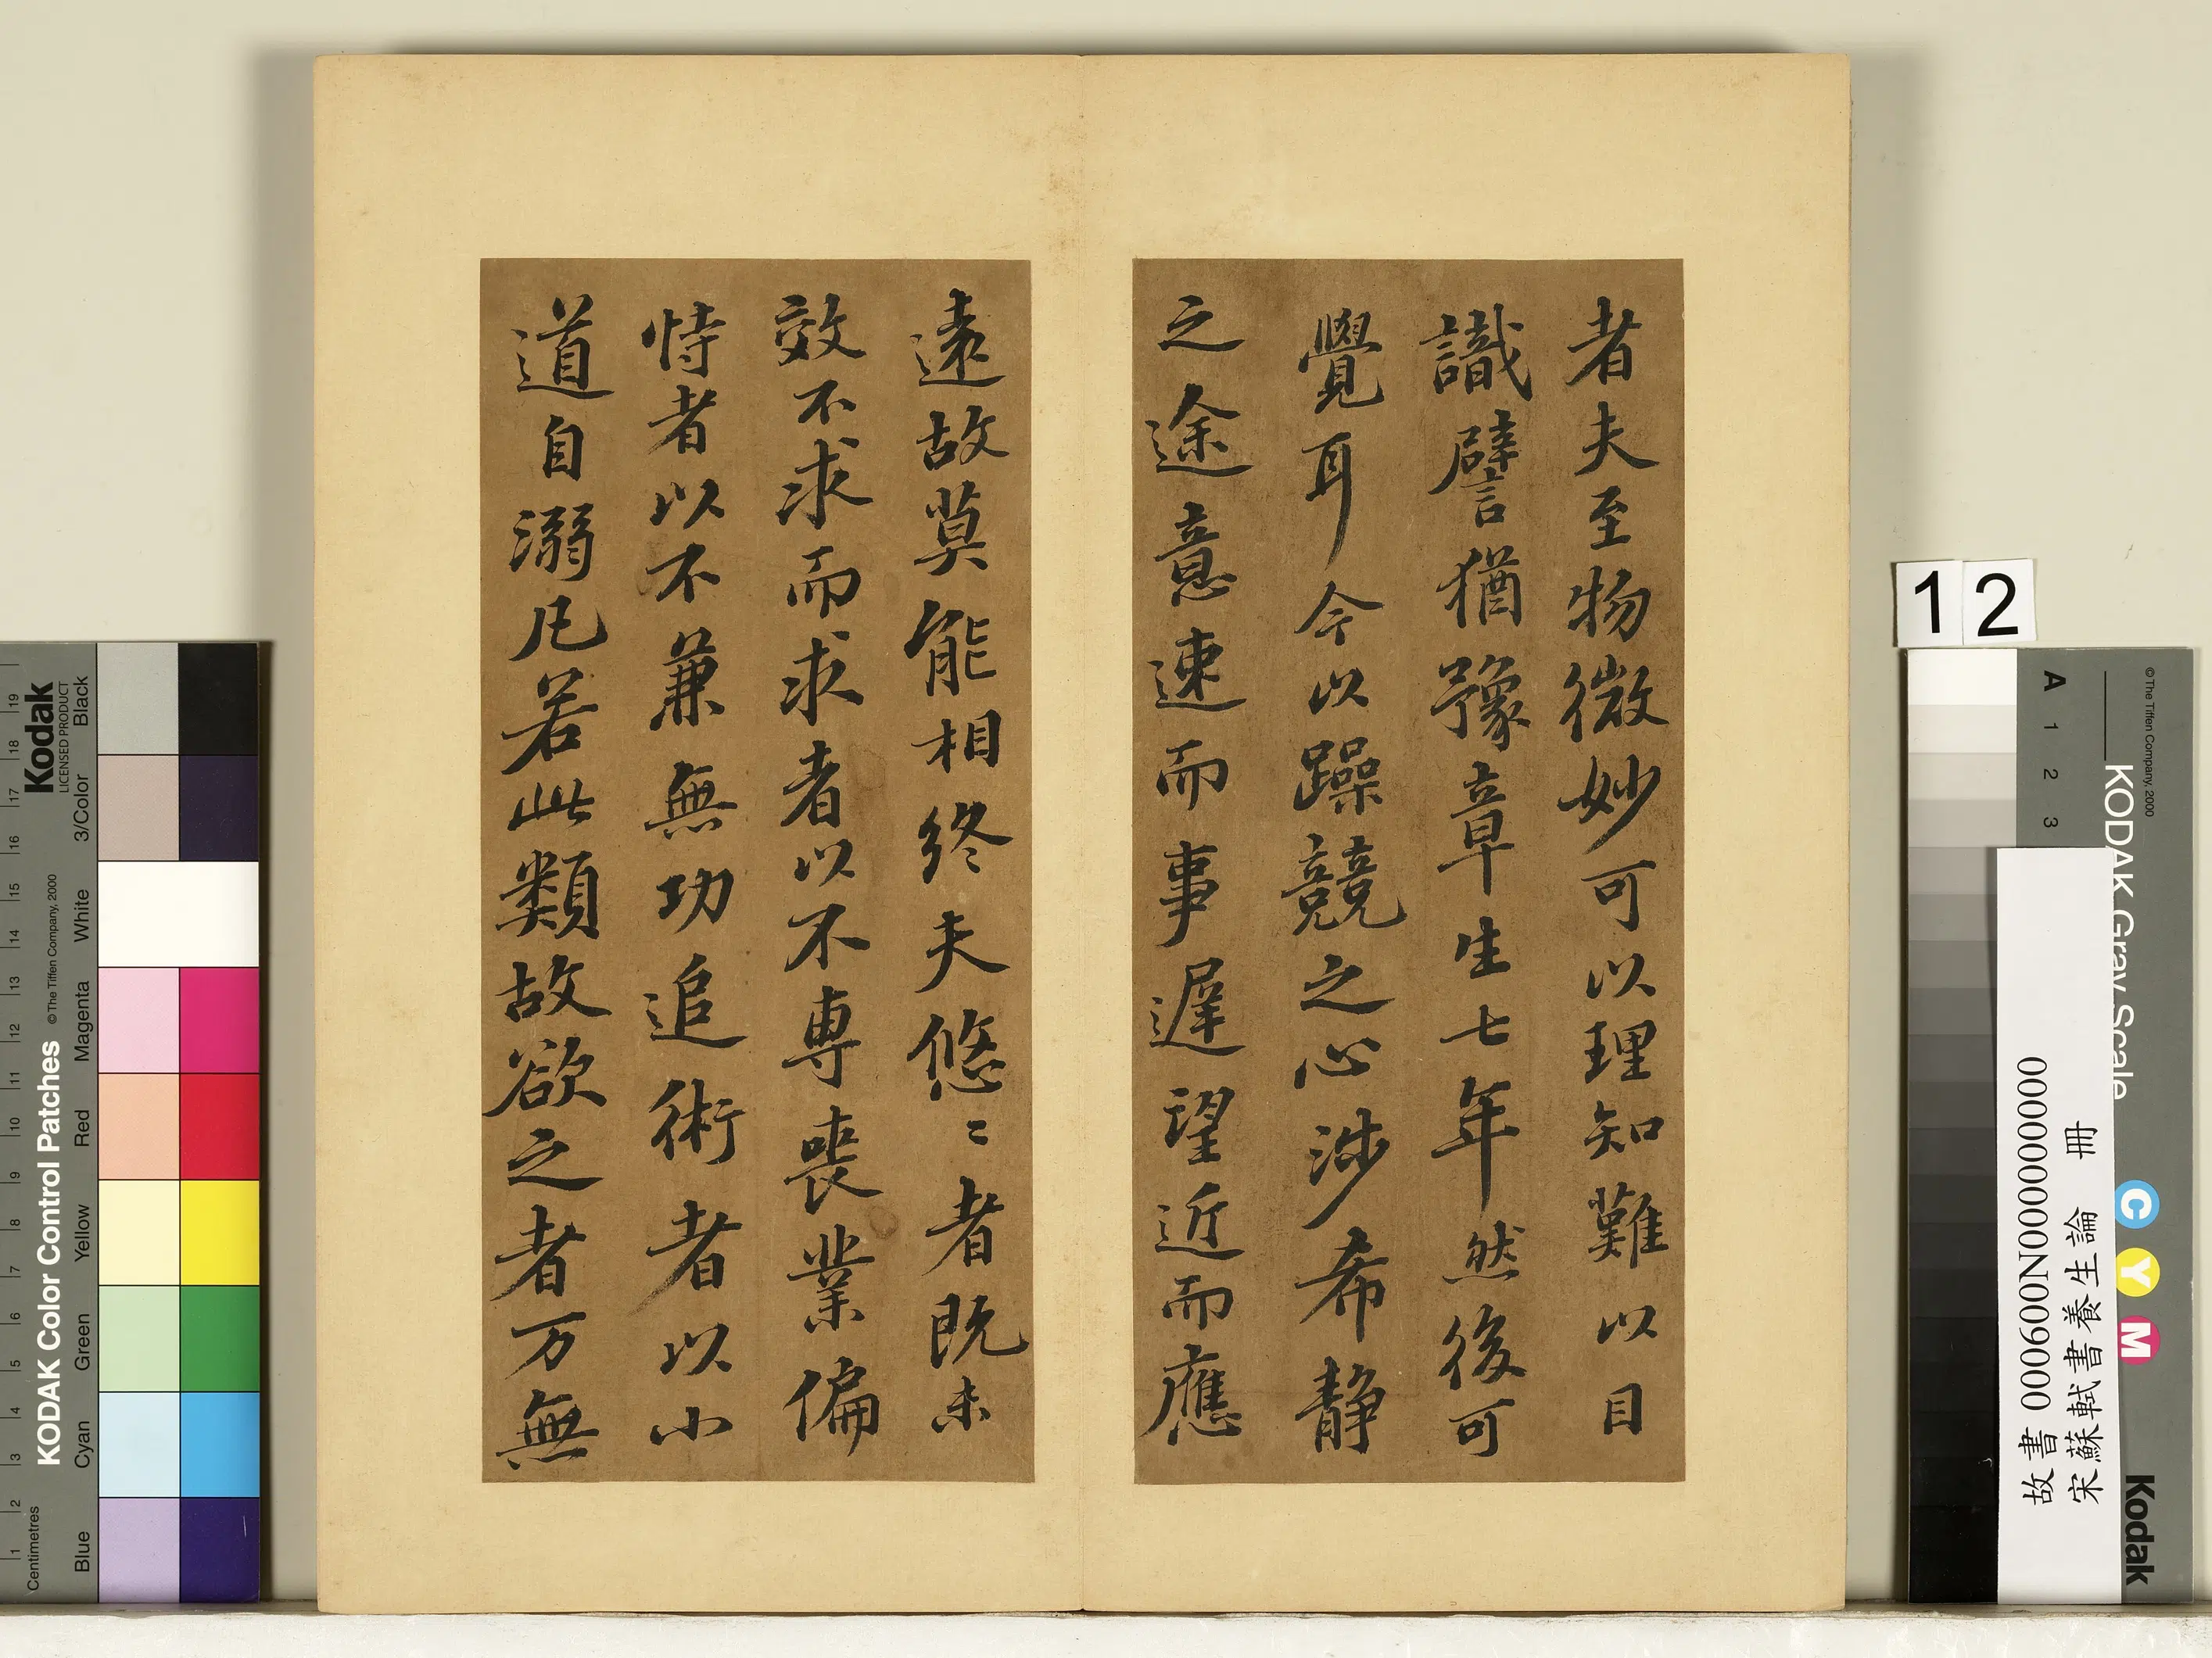 者夫至物微妙可以理知難以目
識譬猶豫章生七年然後可
覺耳今以躁競之心涉希静
之途意速而事遲望近而應
遠故莫能相終夫悠〻者既未
效不求而求者以不専喪業偏
恃者以不兼無功追術者以小
道自溺凡若此類故欲之者万無
12
故書 000600N000000000
宋蘇軾書養生論 冊
KODAK Color Control Patches
©The Tiffen Company, 2000
Kodak
LICENSED PRODUCT
Centimetres
1 2 3 4 5 6 7 8 9 10 11 12 13 14 15 16 17 18 19
Blue Cyan Green Yellow Red Magenta White 3/Color Black
KODAK Gray Scale
©The Tiffen Company, 2000
A 1 2 3
C Y M
Kodak